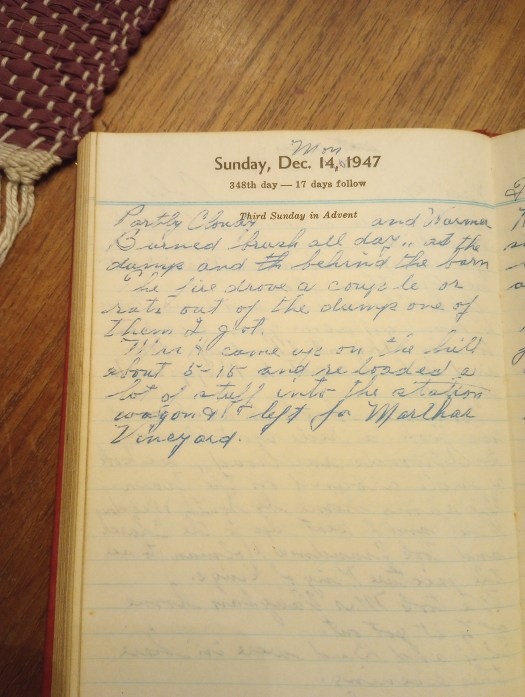 Mon
Sunday, Dec. 14, 1947
348th day — 17 days follow
Third Sunday in Advent
Partly Cloudy and Warmer
Burned brush all day, at the
dump and behind the barn
The fire drove a couple or
rats out of the dump one of
them I got.
Mrs H came up on the hill
about 5-15 and reloaded a
lot of stuff into the station
wagon & left for Marthas
Vineyard.